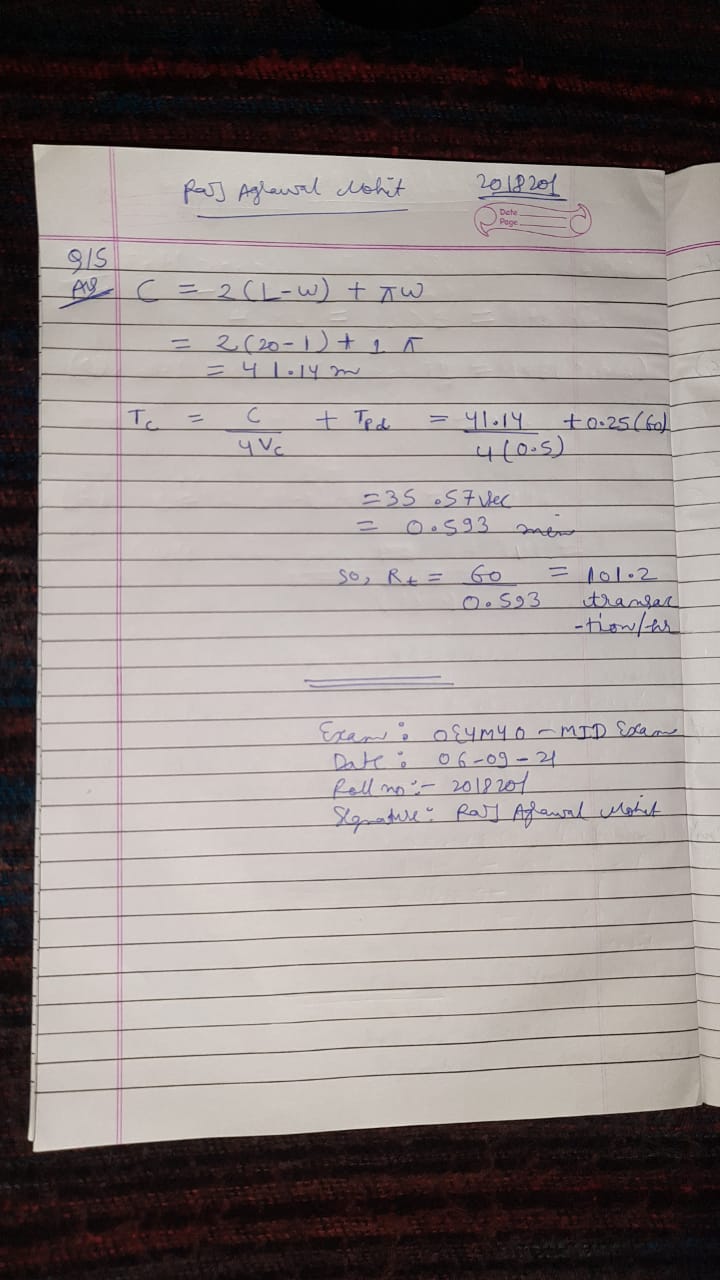 Raj Agrawal Mohit 2018201
Date
Page
Q15
Ans C = 2(L-W) + πW
= 2(20-1) + 1 π
= 41.14 m
Tc = C/4Vc + Tpd = 41.14/4(0.5) + 0.25(60)
= 35.57 sec
= 0.593 min
so, Rt = 60/0.593 = 101.2
transac
-tion/hr
Exam: OE4M40 - MID Exam
Date: 06-09-21
Roll no:- 2018201
Signature: Raj Agrawal Mohit